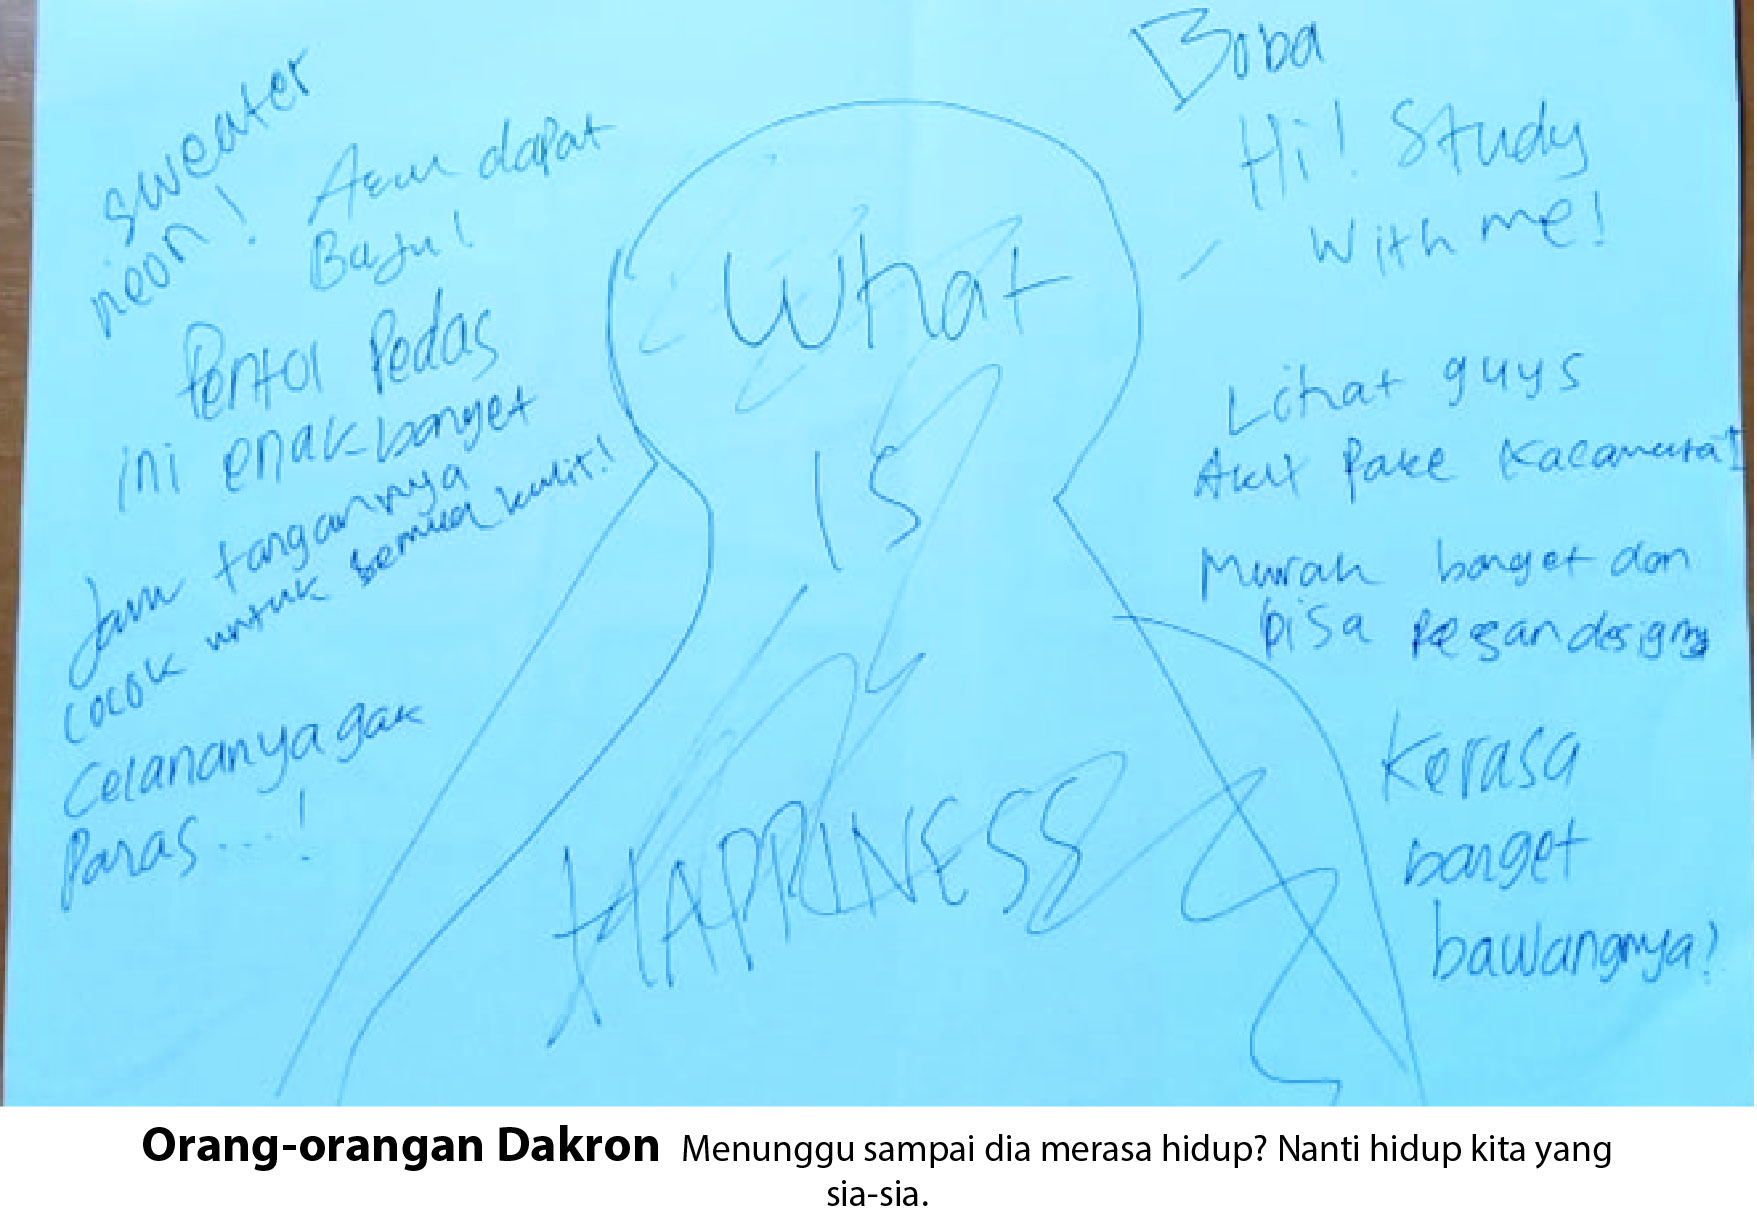 sweater
neon!
Acuu dapat
Baju!
Pentol Pedas
ini enak banget
Jam tangannya
cocok untuk semua kulit!
Celananya gak
Panas...!
What
IS
HAPPINESS
Boba
Hi! Study
With me!
Lihat guys
Aku Pake Kacamata!
Murah banget dan
bisa Pesan designnya
Kerasa
banget
bawangnya?
Orang-orangan Dakron Menunggu sampai dia merasa hidup? Nanti hidup kita yang
sia-sia.